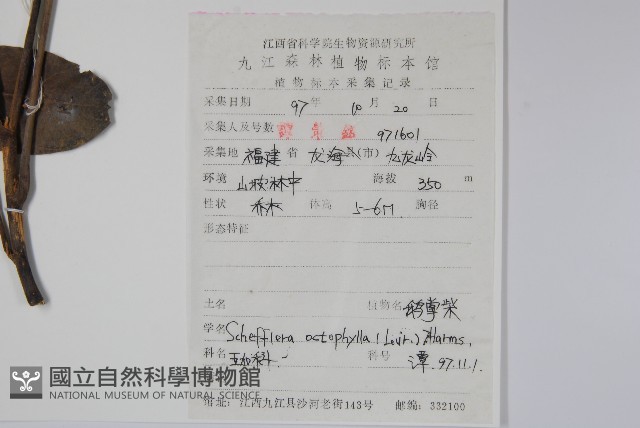 江西省科学院生物资源研究所
九江森林植物标本馆
植物标本采集记录
采集日期 97年 10月 20日
采集人及号数 971601
采集地 福建 省 龙海 县(市) 九龙岭
环境 山坡林中 海拔 350 m
性状 乔木 体高 5-6M 胸径
形态特征
土名 植物名 鹅掌柴
学名 Schefflera octophylla (Lour.) Harms.
科名 五加科 科号 谭 97.11.1.
國立自然科學博物館
NATIONAL MUSEUM OF NATURAL SCIENCE
馆址: 江西九江县沙河老街143号 邮编: 332100